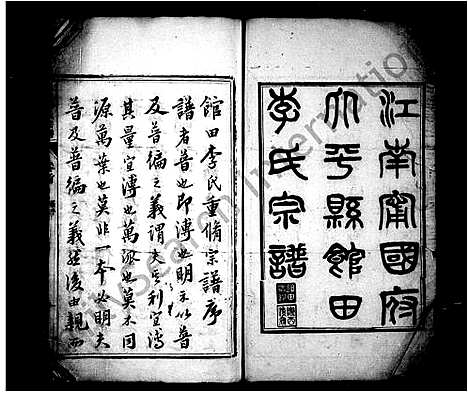 江南甯國府
太平縣館田
李氏宗譜
館田李氏重脩宗譜序
譜者普也即溥也明立以普
及普徧之義謂夫玄利宜溥
其量宜溥也萬派也莫不同
源萬葉也莫非一本必明夫
普及普徧之義然後由親而